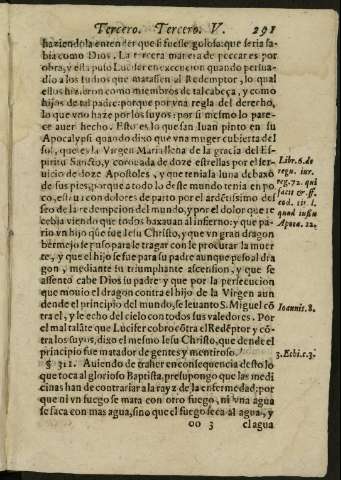 Tercero. Tercero. V. 291
haziendola entender que si fuesse golosa: que seria sa-
bia como Dios. La tercera manera de peccar es por
obra, y esta puso Lucifer en execucion quando persua-
dio a los Iudios que matassen al Redemptor, lo qual
ellos hizieron como miembros de tal cabeça, y como
hijos de tal padre: porque por vna regla del derecho,
lo que vno haze por los suyos: por si mesmo lo pare-
ce auer hecho. Esto es lo que san Iuan pinto en su
Apocalypsi quando dixo que vna muger cubierta del
sol, que es la Virgen Maria llena de la gracia del Es-
piritu Sancto, y coronada de doze estrellas por el ser-
uicio de doze Apostoles, y que tenia la luna debaxo
de sus pies, porque a todo lo deste mundo tenia en po-
co, estaua con dolores de parto por el ardētissimo des-
seo de la redempcion del mundo, y por el dolor que re
cebia viendo que todos baxauan al infierno; y que pa-
rio vn hijo que fue Iesu Christo, y que vn gran dragon
bermejo se puso para le tragar con le procurar la muer
te, y que el hijo se fue para su padre aunque pesó al dra
gon, mediante su triumphante ascension, y que se
assentó cabe Dios su padre: y que por la persecucion
que mouio el dragon contra el hijo de la Virgen aun
dende el principio del mundo, se leuanto S. Miguel cō
tra el, y le echo del cielo con todos sus valedores. Por
el mal talāte que Lucifer cobro cōtra el Redēptor y cō-
tra los suyos, dixo el mesmo Iesu Christo, que dende el
principio fue matador de gentes y mentiroso.
§ 311. Auiendo de traher en consequencia desto lo
que toca al glorioso Baptista, presupongo que las me di
cinas han de contrariar a la rayz de la enfermedad; por
que ni vn fuego se mata con otro fuego, ni vna agua
se saca con mas agua, sino que el fuego seca al agua, y
oo 3 el agua
Libr. 6. de
regu. iur.
reg. 72. qui
facit & ff.
eod. tit. l.
quod iussu
Apoca. 12.
Ioannis. 8.
3. Ethi. c. 3.